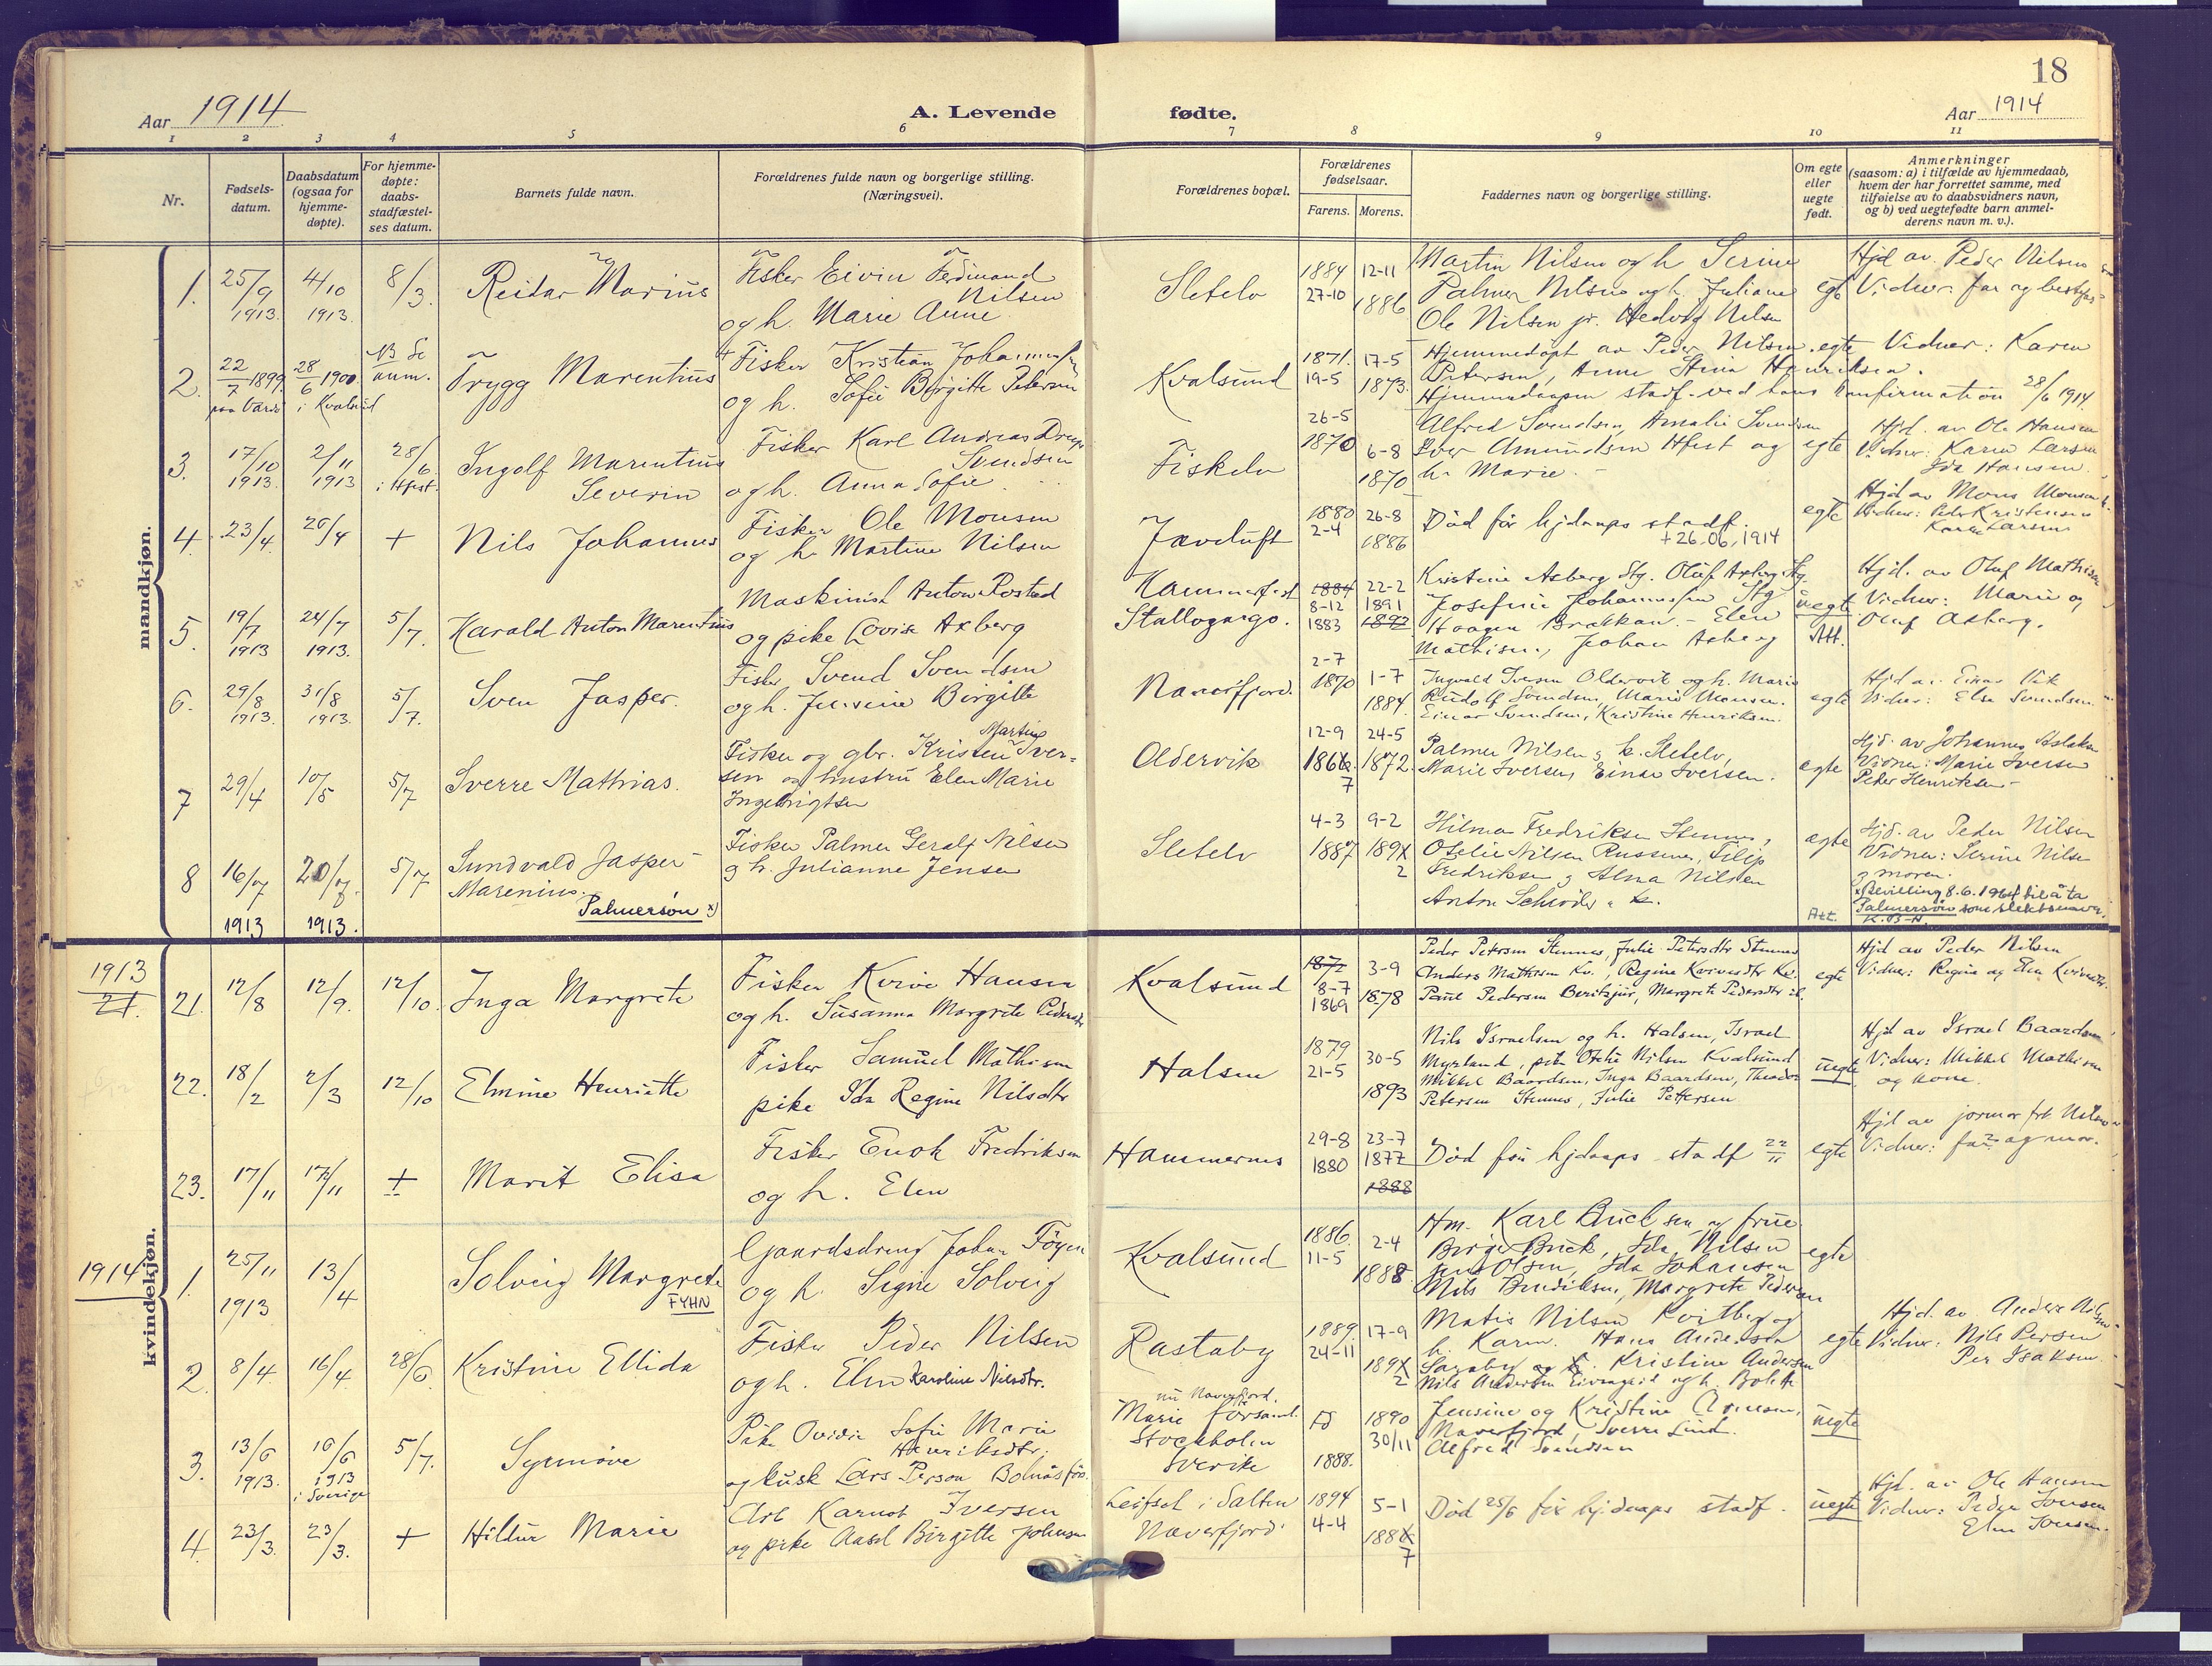 18
Aar 1914
A. Levende
fødte.
Aar 1914
1 2 3 4 5 6 7 8 9 10 11
Nr.
Fødsels-
datum.
Daabsdatum
(ogsaa for
hjemme-
døpte).
For hjemme-
døpte:
daabs-
stadfæstel-
ses datum.
Barnets fulde navn.
Forældrenes fulde navn og borgerlige stilling.
(Næringsvei).
Forældrenes bopæl.
Forældrenes
fødselsaar.
Farens. Morens.
Faddernes navn og borgerlige stilling.
Om egte
eller
uegte
født.
Anmerkninger
(saasom: a) i tilfælde av hjemmedaab,
hvem der har forrettet samme, med
tilføielse av to daabsvidners navn,
og b) ved uegtefødte barn anmel-
derens navn m. v.).
mandkjøn.
1. 25/9 1913. 4/10 1913. 8/3. Reidar Marius
Fisker Eivin Ferdinand
Nilsen
og h. Marie Anne
Sletelv
1884 27-10
12-11 1886
Martin Nilsen og h Serine
Palmer Nilsen og h. Juliane
Ole Nilsen jr. Hedvig Nilsen
egte
Hjd av. Peder Nilsen
Vidner: far og
2. 22/7 1899 28/6 1900 i Kvalsund
Trygg Marentius
Fisker Kristian
og h. Sofie Birgitte Petersen
Kvalsund
1871. 19-5
17-5 1873.
Hjemmedøpt av Peder Nilsen. egte Vidner: Karen
Petersen, Anne Stina Henriksen.
Hjemmedaapen stadf. ved hans konfirmation 28/6 1914.
3. 17/10 1913. 2/11 1913 28/6 i Hfest.
Ingolf Marentius
Severin
Fisker Karl Andreas
Svendsen
og h. Anna Sofie
Fiskelv
26-5 1870
6-8 1870
Alfred Svendsen, Amalie Svendsen
Iver Amundsen Hfest og
h. Marie.
egte
Hjd. av Ole Hansen
Vidner: Karen Larsen
Ida Hansen.
4. 23/4. 26/4 + Nils Johannes
Fisker Ole Monsen
og h. Martine Nilsen
Jævluft
1880 2-4
26-8 1886
Død før hjdaaps stadf.
+26.06.1914
egte
Hjd av Mons Monsen
Vidner: Peder Kristensen
Karen Larsen
5. 19/7 1913 24/7 1913. 5/7. Harald Anton Marentius
Maskinist Anton Rostad
og pike Lovise Axberg
Hammerfest
Stallogargo.
1884 8-12 1883
22-2 1891 1892
Kristine Axberg Stg. Oluf Axberg Stg.
Josefine Johannesen Stg
Haagen Brakkan. - Elen
Mathisen, Johan Axberg
uegte
Att.
Hjd. av Oluf Mathisen
Vidner: Marie og
Oluf Axberg.
6. 29/8 1913. 31/8 1913. 5/7. Sven Jasper.
Fisker Svend Svendsen
og h. Jensine Birgitte
Naverfjord.
2-7 1870
1-7 1884
Ingvald Iversen Oldervik og h. Marie
Rudolf Svendsen, Marie Monsen.
Einar Svendsen, Kristine Henriksen.
egte
Hjd av Einar Vik
Vidner: Elen Svendsen
7 29/4 10/5 5/7 Sverre Mathias.
Martin
Fisker og gbr. Kristen Iver-
sen og hustru Elen Marie
Ingebrigtsen
Oldervik
12-9 1867
24-5 1872.
Palmer Nilsen og h. Sletelv,
Marie Iversen, Einar Iversen.
egte
Hjd. av Johannes Aslaksen
Vidner: Marie Iversen
Peder Henriksen
8 16/7 1913 20/7. 1913. 5/7 Sundvald Jasper
Marenius.
Palmersøn x)
Fisker Palmer Geralf Nilsen
og h. Julianne Jensen
Sletelv
4-3 1887
9-2 1892
Hilmar Fredriksen Stennes,
Otelie Nilsen Russenes, Filip
Fredriksen og Alma Nilsen
Anton Schrøder
egte
Att.
Hjd. av Peder Nilsen
Vidner: Serine Nilsen
og moren.
x Bevilling 8.6.1964 til å ta
Palmersøn som slektsnavn.
K.B-N
1913
21.
21. 12/8 12/9. 12/10. Inga Margrete
Fisker Kvive Hansen
og h. Susanna Margrete Pedersdtr
Kvalsund
1872 8-7 1869
3-9 1878
Peder Petersen Stennes, Julie Petersdtr Stennes
Anders Mathisen Kv., Regine Kvivesdtr Kv.
Paul Pedersen Beritsjur, Margrete Pedersdtr
egte
Hjd av Peder Nilsen
Vidner: Regine og Elen Kvivesdtr.
22. 18/2 2/3 12/10 Elmine Henriette
Fisker Samuel Mathisen
pike Ida Regine Nilsdtr
Halsen
1879 21-5
30-5 1893
Nils Israelsen og h. Halsen, Israel
Myrland, pike Otelie Nilsen Kvalsund
Mikkel Baardsen, Inga Baardsen, Theodor
Petersen Stennes, Julie Pettersen
uegte
Hjd av Israel Baardsen
Vidner: Mikkel Mathisen
og kone.
23. 17/11 17/11 + Marit Elisa
Fisker Enok Fredriksen
og h. Elen
Hammernes
29-8 1880
23-7 1877 1888
Død før hjdaaps stadf 22/11
egte
Hjd av jormor frk Nilsen
Vidner: far og mor.
kvindekjøn.
1914
1. 25/11 1913 13/4 Solveig Margrete
FYHN
Gaardsdreng Johan Føyen
og h. Signe Solveig
Kvalsund
1886. 11-5
2-4 1888.
Hm. Karl Buck sen og frue
Borge Buck, Ida Nilsen
Jens Olsen, Ida Johansen
Nils Bendiksen, Margrete Pedersen
egte
2. 8/4. 16/4 28/6. Kristine Ellida
Fisker Peder Nilsen
og h. Elen Karoline Nilsdtr.
Rastaby
1889. 24-11
17-9 1892
Matis Nilsen Kvitberg og
h. Karen. Hans Andersen
Saraby og h. Kristine Andersen
Nils Andersen og h. Bolette
egte
Hjd. av Anders Nilsen
Vidner: Nils Persen
Per Isaksen.
3. 13/6 1913. 16/6 1913 i Sverige 5/7. Synnøve
Pike Ovidie Sofie Marie
Henriksdtr.
og kusk Lars Person Bolnäs förs.
nu Naverfjord.
Marie församl.
Stockholm
Sverike
1890 30/11 1888.
Jensine og Kristine
Naverfjord, Sverre Lind.
Alfred Svendsen
uegte
4. 23/3. 23/3. + Hildur Marie
Arb Karnot Iversen
og pike Aasel Birgitte Johnsen
Leifset i Salten
Naverfjord
1894 4-4
5-1 1887
Død 25/6 før hjdaaps stadf.
uegte
Hjd. av Ole Hansen
Vidner: Peder Jonsen
Elen Jonsen.